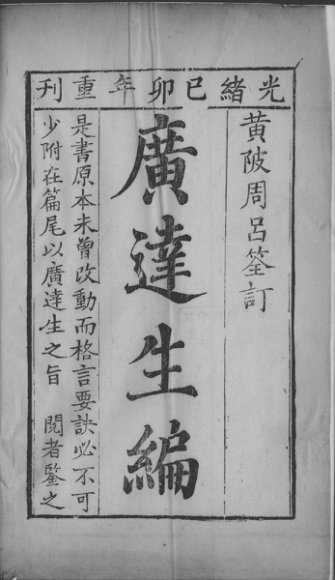 光緒己卯年重刊
黃陂周呂筌訂
廣達生編
是書原本未曾改動而格言要訣必不可
少附在篇尾以廣達生之旨 閱者鑒之